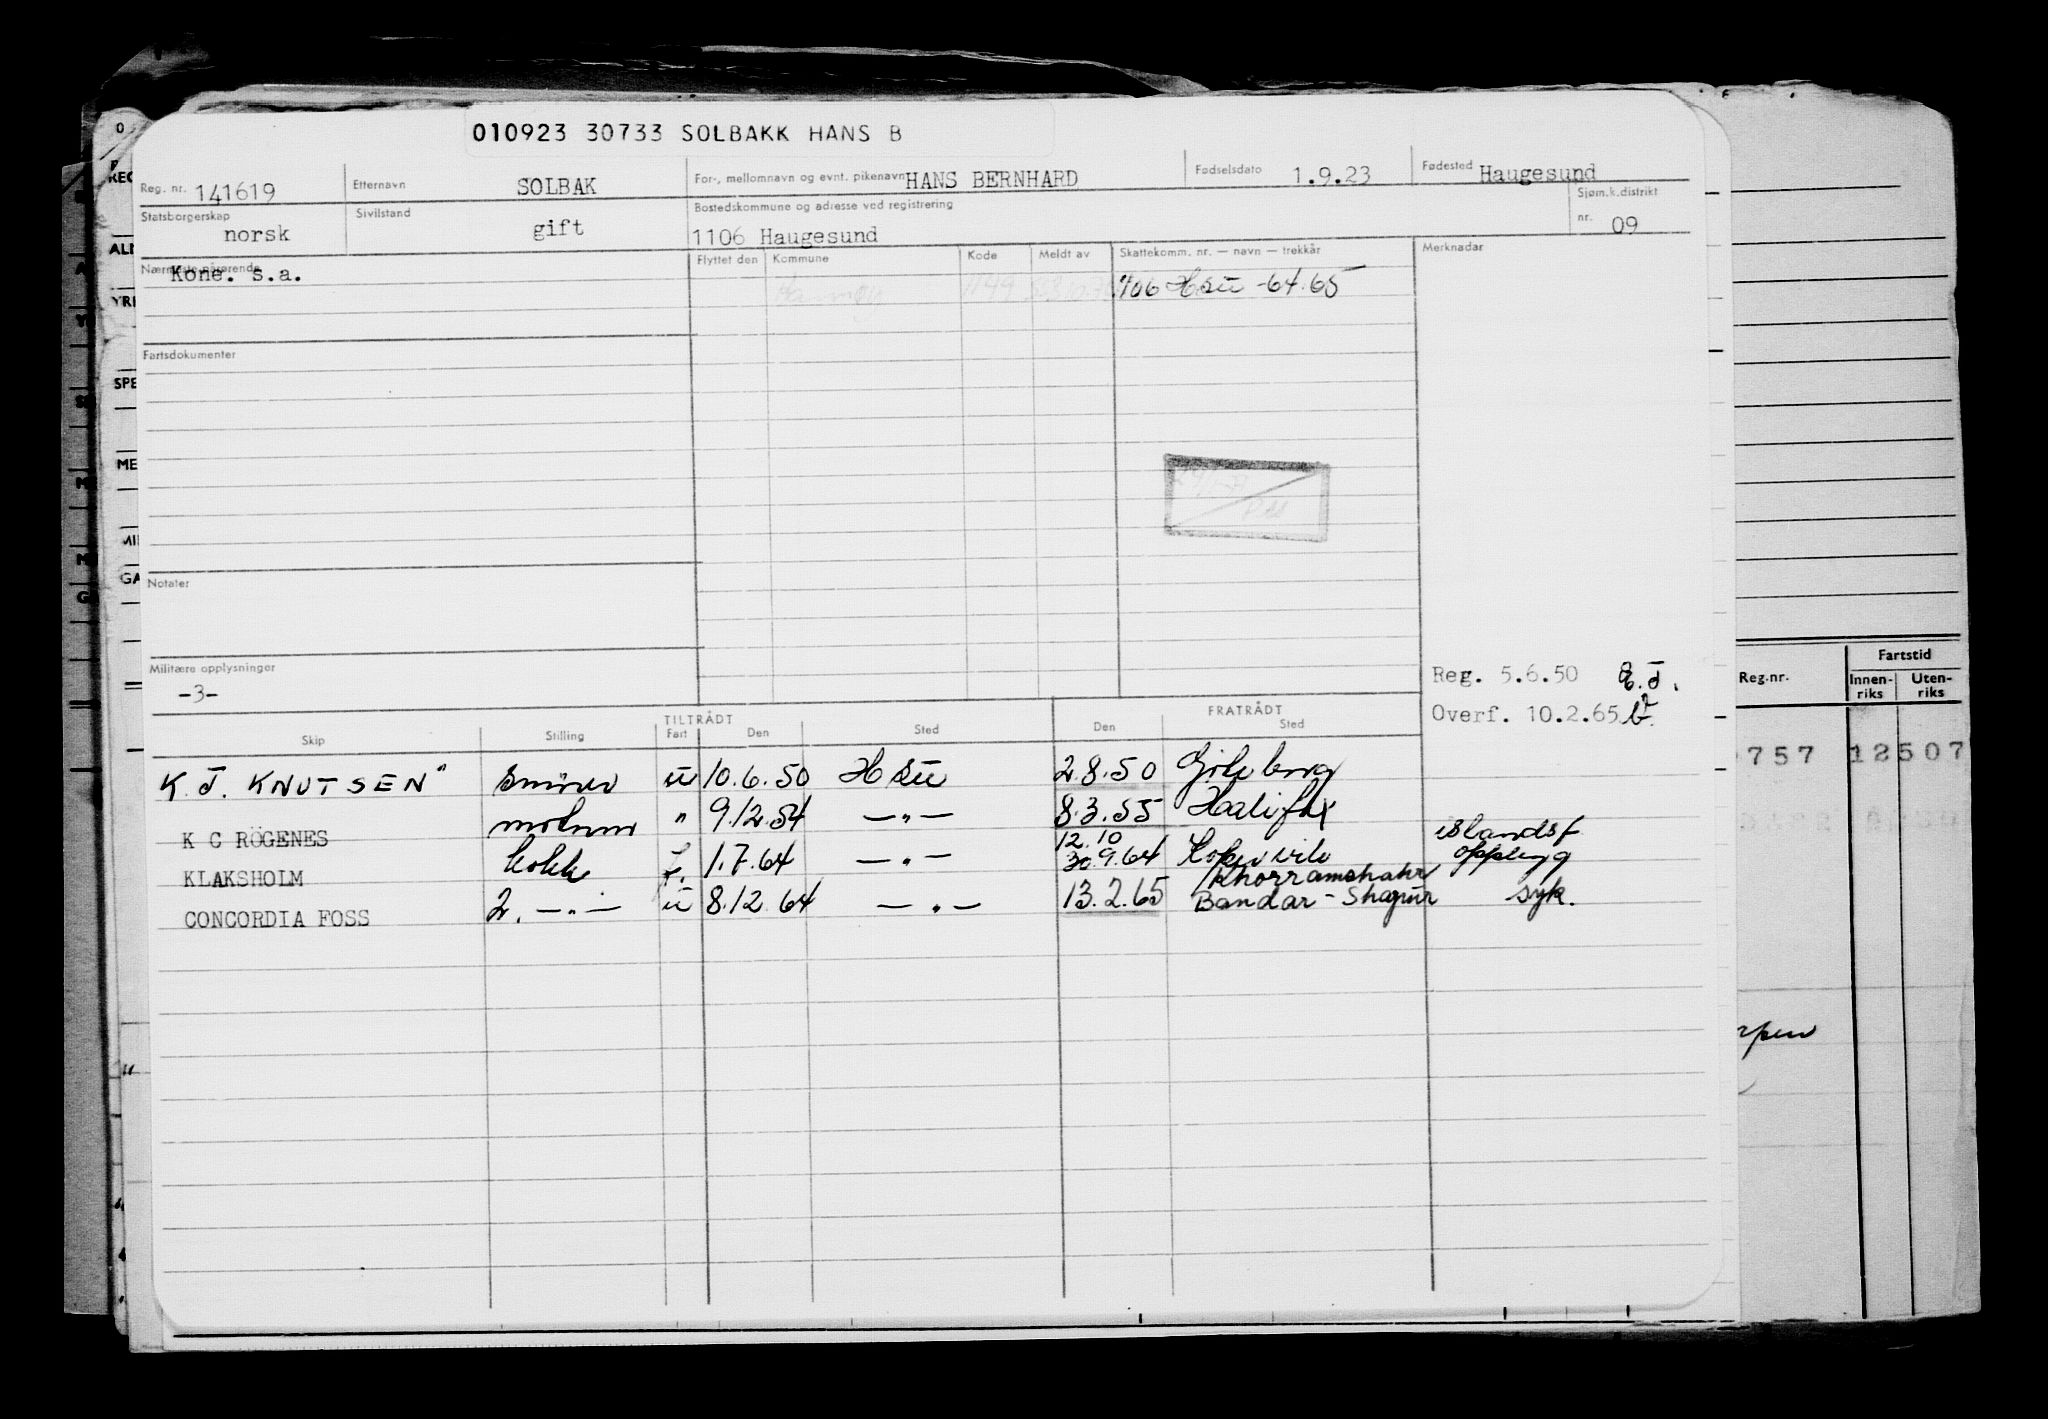 010923 30733 SOLBAKK HANS B
Reg. nr. 141619 Etternavn SOLBAK For-, mellomnavn og evnt. pikenavn HANS BERNHARD Fødselsdato 1.9.23 Fødested Haugesund
Statsborgerskap norsk Sivilstand gift Bostedskommune og adresse ved registrering 1106 Haugesund Sjøm.k.distrikt nr. 09
Nærmeste pårørende Kone. s.a. Flyttet den Kommune Kode Meldt av Skattekomm. nr. — navn — trekkår Merknader
1106 Hsu -64.65
Fartsdokumenter
Notater
Militære opplysninger
-3-
Reg. 5.6.50
Overf. 10.2.65
TILTRÅDT FRATRÅDT
Skip Stilling Fart Den Sted Den Sted
K. J. KNUTSEN" u 10.6.50 Hsu 2.8.50
K C RÖGENES " 9.12.54 —"— 8.3.55 Halifax
KLAKSHOLM kokk 1.7.64 —"— 12.10 30.9.64 islandsf opplegg
CONCORDIA FOSS 2. —"— u 8.12.64 —"— 13.2.65 Khorramshahr Bandar-Shapur syk.
Reg.nr. Fartstid
Innen-riks Uten-riks
757 12507
REG
ALD
YRK
SPE
ME
MI
GA